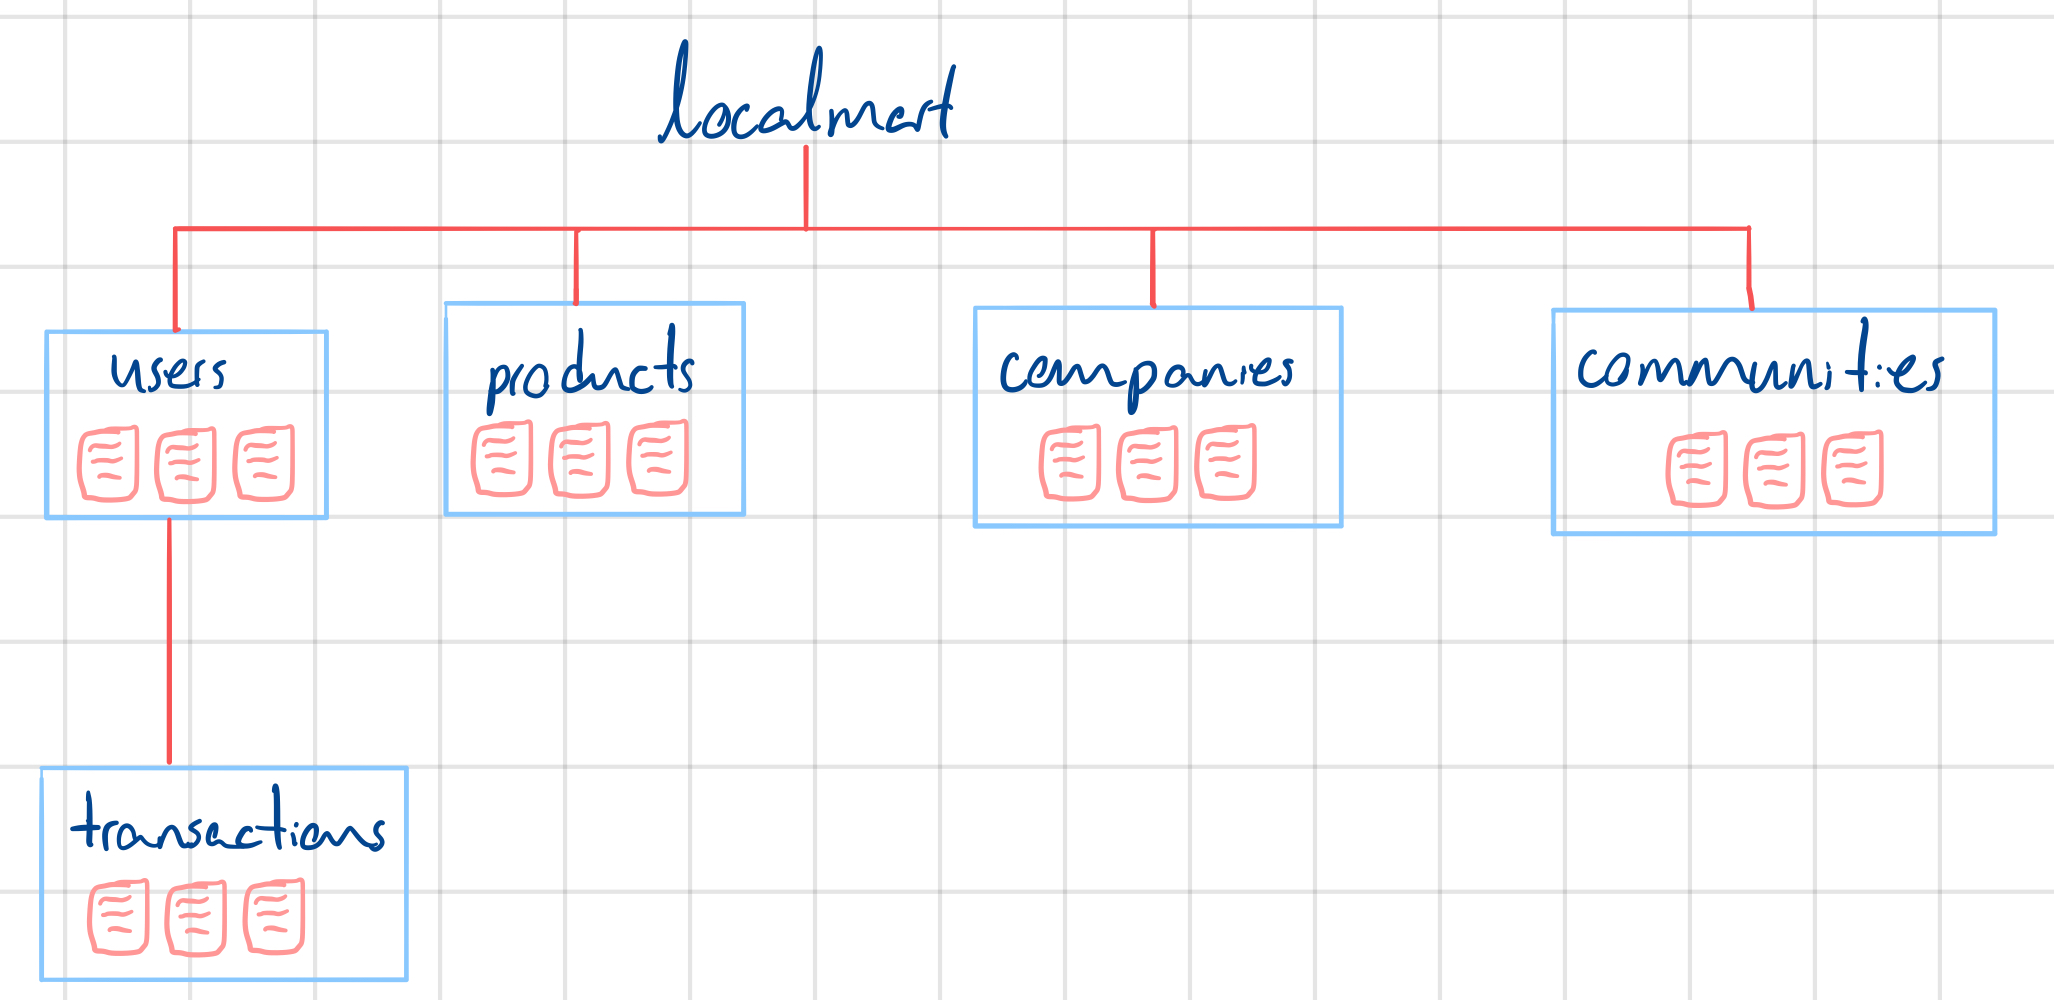 localmart
users
products
companies
communities
transactions